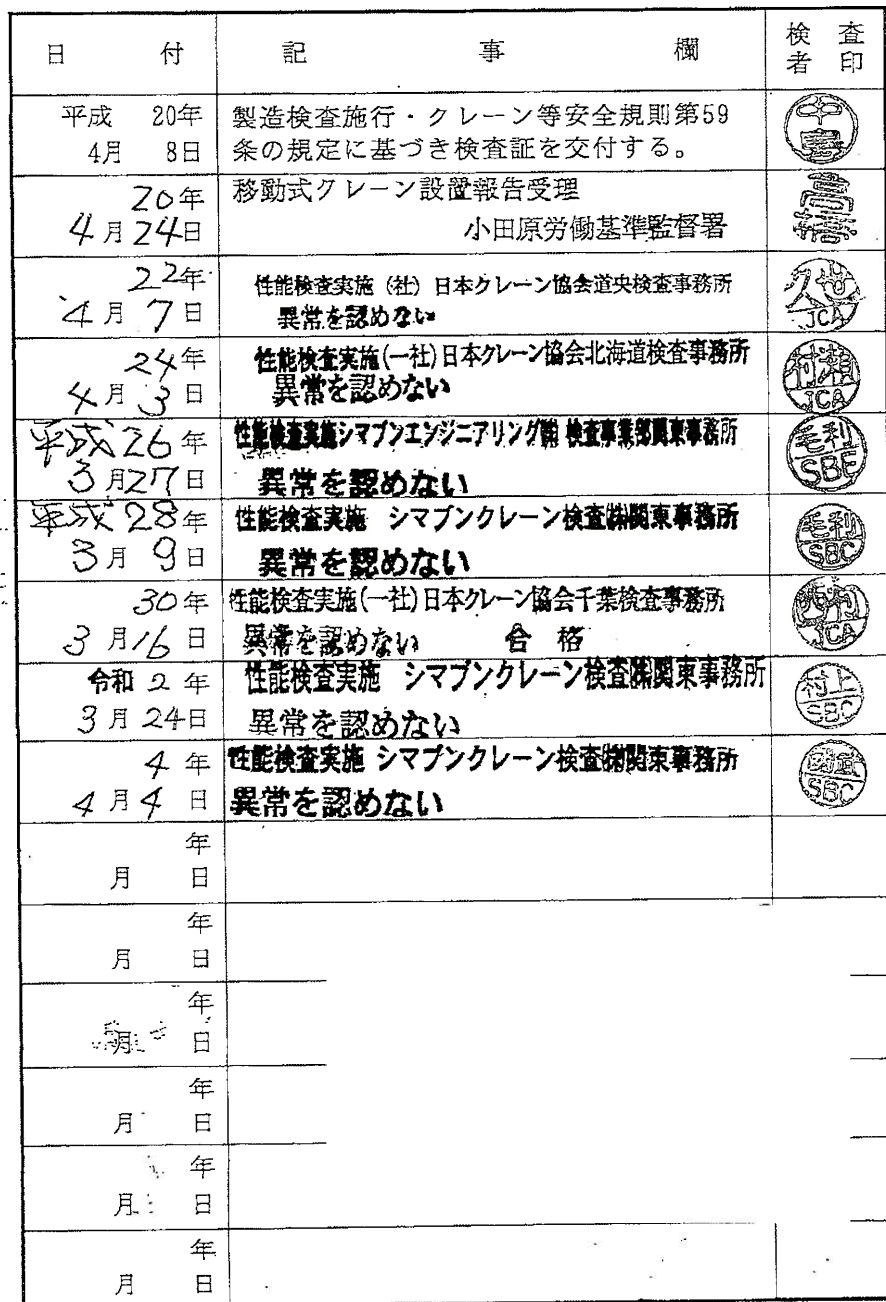 日 付 記 事 欄 検 査
者 印
平成 20年 製造検査施行・クレーン等安全規則第59
4月 8日 条の規定に基づき検査証を交付する。
中島
20年 移動式クレーン設置報告受理
4月24日 小田原労働基準監督署
高橋
22年 性能検査実施(社)日本クレーン協会道央検査事務所
4月 7日 異常を認めない
久世
JCA
24年 性能検査実施(一社)日本クレーン協会北海道検査事務所
4月 3日 異常を認めない
村瀬
JCA
平成26年 性能検査実施シマブンエンジニアリング㈱ 検査事業部関東事務所
3月27日 異常を認めない
毛利
SBE
平成28年 性能検査実施 シマブンクレーン検査㈱関東事務所
3月 9日 異常を認めない
毛利
SBC
30年 性能検査実施(一社)日本クレーン協会千葉検査事務所
3月16日 異常を認めない 合 格
JCA
令和 2年 性能検査実施 シマブンクレーン検査㈱関東事務所
3月24日 異常を認めない
村上
SBC
4年 性能検査実施 シマブンクレーン検査㈱関東事務所
4月4日 異常を認めない
SBC
年
月 日
年
月 日
年
月 日
年
月 日
年
月 日
年
月 日